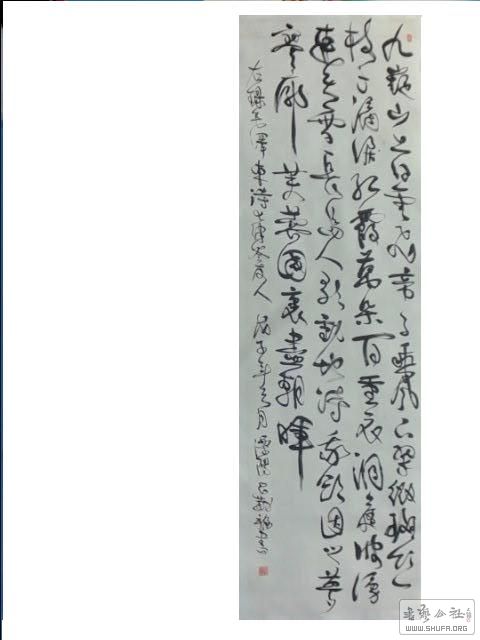 九嶷山上白雲飛帝子乘風下翠微斑竹一
枝千滴淚紅霞萬朵百重衣洞庭波涌
連天雪長島人歌動地詩我欲因之夢
寥廓芙蓉國裏盡朝暉
右錄毛澤東詩七律答友人 戊子年
書藝公社
WWW.SHUFA.ORG